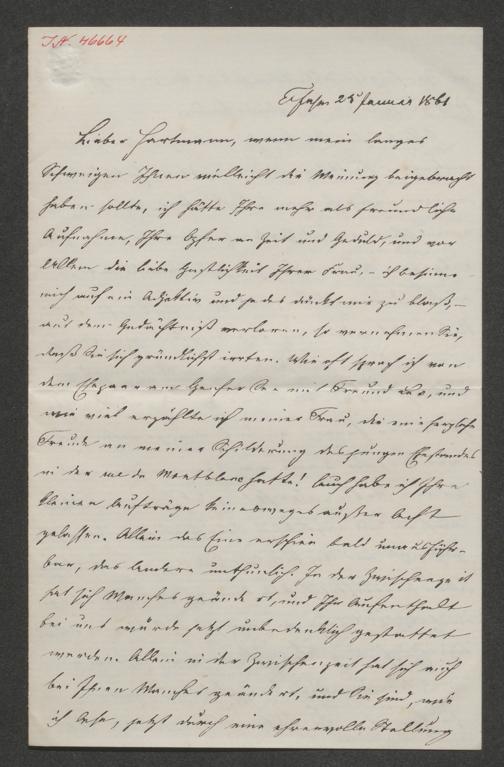 I.N. 46664
25 Januar 1861
Lieber Hartmann, wenn mein langes
Schweigen Ihnen vielleicht die Meinung beigebracht
haben sollte, ich hätte Ihre mehr als freundliche
Aufnahme, Ihre Opfer an Zeit und Geduld, und vor
Allem die liebe Gastlichkeit Ihrer Frau, – ich besinne
mich auf ein Adjektiv und jedes dünkt mir zu blaß, –
aus dem Gedächtniß verloren, so vernehmen Sie,
daß Sie sich gründlichst irrten. Wie oft sprach ich von
dem Ehepaar am Genfer See mit Freund und
wie viel erzählte ich meiner Frau, die eine herzliche
Freude an meiner Schilderung des jungen Ehestandes
in der rue du Montblanc hatte! Auch habe ich Ihre
kleinen Aufträge keineswegs außer Acht
gelassen. Allein das Eine erschien bald unausführ-
bar, das Andere unthunlich. In der Zwischenzeit
hat sich Manches geändert, und Ihr Aufenthalt
bei uns würde jetzt unbedenklich gestattet
werden. Allein in der Zwischenzeit hat sich auch
bei Ihnen Manches geändert, und Sie sind, wie
ich sehe, jetzt durch eine ehrenvolle Stellung